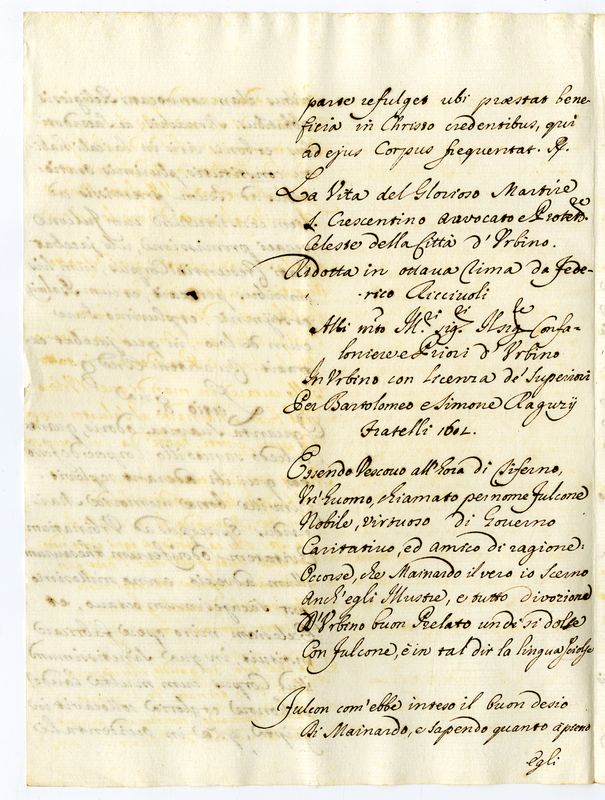 parte refulget ubi præstat bene-
ficia in Christo credentibus, qui
ad ejus Corpus frequentat. &.
La Vita del Glorioso Martire
S. Crescentino avvocato e Protett.re
Celeste della Città d'Urbino.
Ridotta in ottava Rima da Fede-
rico Ricciuoli
Alli mto Ill.ri Sig.ri Il Sig.re Confa-
loniere e Priori d'Urbino
In Urbino con licenza de' Superiori
Per Bartolomeo e Simone Raguzij
Fratelli 1602.
Essendo Vescovo all'hora di Tiferno,
Un'huomo, chiamato per nome Fulcone
Nobile, virtuoso di Governo
Caritativo, ed amico di ragione:
Occorse, che Mainardo il vero io scerno
Anch'egli Illustre, e tutto divozione
D'Urbino buon Prelato un dì si dolse
Con Fulcone, e in tal dir la lingua sciolse
Fulcon com'ebbe inteso il buon desio
Di Mainardo, e sapendo quanto a pieno
Egli